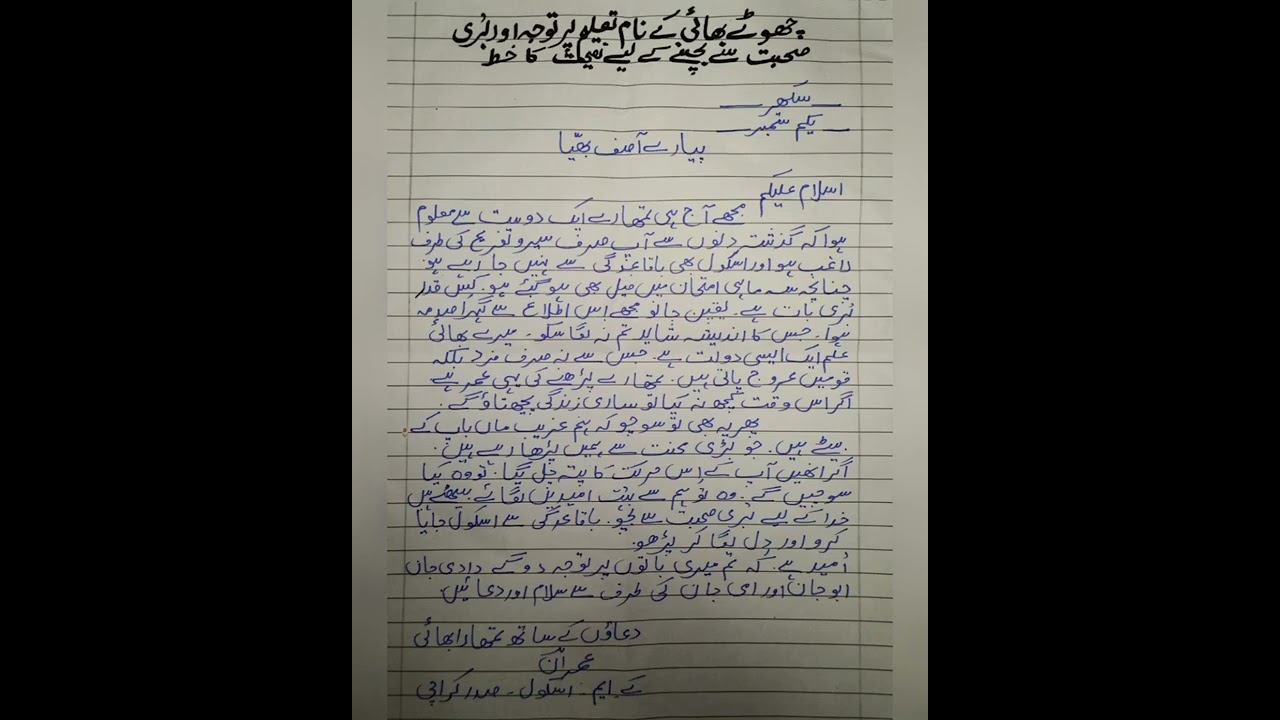 چھوٹے بھائی کے نام تعلیم پر توجہ اور بُری
صحبت سے بچنے کے لیے نصیحت کا خط
سکھر
یکم ستمبر
پیارے آصف بھیّا
اسلام علیکم
مجھے آج ہی تمھارے ایک دوست سے معلوم
ہوا کہ گذشتہ دنوں سے آپ صرف سیر و تفریح کی طرف
راغب ہو اور اسکول بھی باقاعدگی سے نہیں جا رہے ہو۔
چنانچہ سہ ماہی امتحان میں فیل بھی ہو گئے ہو۔ کس قدر
بُری بات ہے۔ یقین جانو مجھے اس اطلاع سے گہرا صدمہ
ہوا۔ جس کا اندیشہ شاید تم نہ لگا سکو۔ میرے بھائی
علم ایک ایسی دولت ہے۔ جس سے نہ صرف فرد بلکہ
قومیں عروج پاتی ہیں۔ تمھارے پڑھنے کی یہی عمر ہے
اگر اس وقت کچھ نہ کیا تو ساری زندگی پچھتاؤ گے۔
پھر یہ بھی تو سوچو کہ ہم غریب ماں باپ کے
بیٹے ہیں۔ جو بڑی محنت سے ہمیں پڑھا رہے ہیں۔
اگر انھیں آپ کے اِس حرکت کا پتہ چل گیا۔ تو وہ کیا
سوچیں گے۔ وہ تو ہم سے بہت امیدیں لگائے بیٹھے ہیں
خدا کے لیے بُری صحبت سے بچو۔ باقاعدگی سے اسکول جایا
کرو اور دِل لگا کر پڑھو۔
اُمید ہے۔ کہ تم میری باتوں پر توجہ دو گے دادی جان
ابو جان اور امی جان کی طرف سے سلام اور دعائیں۔
دعاؤں کے ساتھ تمھارا بھائی
عمران
کے۔ ایم۔ اسکول۔ صدر کراچی